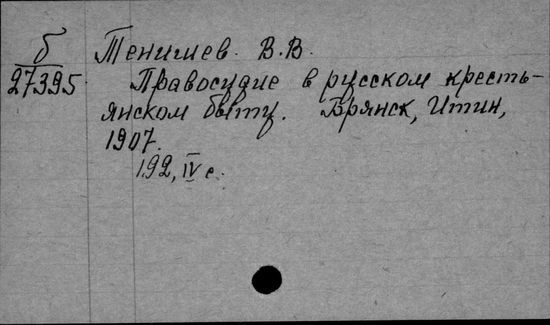 б Тенишев. В.В.
27395. Правосудие в русском кресть-
янском быту. Брянск, Итин,
1907.
192, IV с.